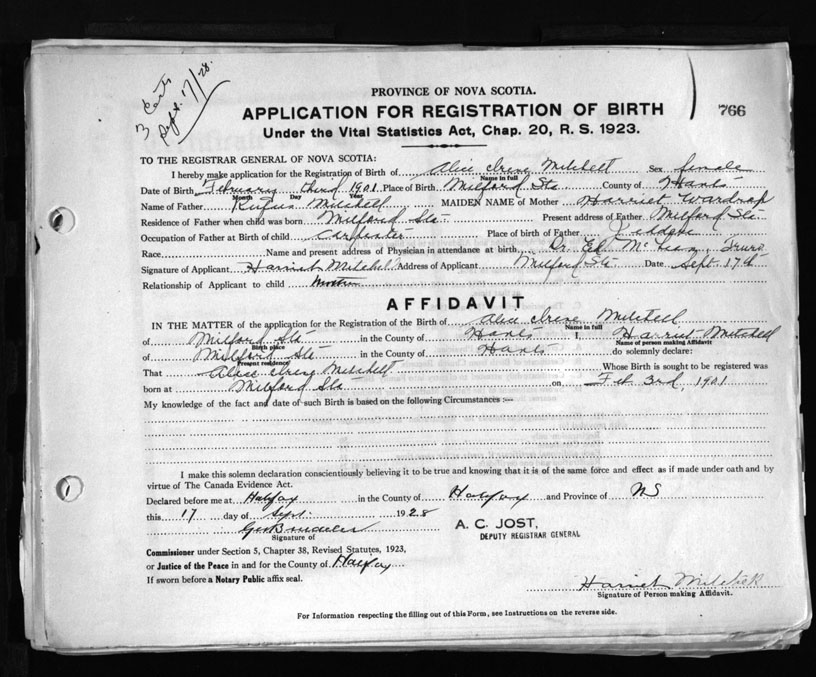 3 Certs
Sept. 17/28.
PROVINCE OF NOVA SCOTIA.
APPLICATION FOR REGISTRATION OF BIRTH
766
Under the Vital Statistics Act, Chap. 20, R. S. 1923.
TO THE REGISTRAR GENERAL OF NOVA SCOTIA:
I hereby make application for the Registration of Birth of Alice Irene Mitchell Sex female
Name in full
Date of Birth February third 1901 Place of Birth Milford Sta. County of Hants
Month Day Year
Name of Father Rufus Mitchell MAIDEN NAME of Mother Harriet Wardrop
Residence of Father when child was born Milford Sta Present address of Father Milford Sta
Occupation of Father at Birth of child Carpenter Place of birth of Father
Race Name and present address of Physician in attendance at birth Dr. Ed Truro
Signature of Applicant Harriet Mitchell Address of Applicant Milford Sta Date Sept. 17th
Relationship of Applicant to child Mother
AFFIDAVIT
IN THE MATTER of the application for the Registration of the Birth of Alice Irene Mitchell
Name in full
of Milford Sta in the County of Hants I, Harriet Mitchell
Birth place Name of person making Affidavit
of Milford Sta in the County of Hants do solemnly declare:
Present residence
That Alice Irene Mitchell Whose Birth is sought to be registered was
born at Milford Sta on Feb 3rd, 1901
My knowledge of the fact and date of such Birth is based on the following Circumstances :—
I make this solemn declaration conscientiously believing it to be true and knowing that it is of the same force and effect as if made under oath and by
virtue of The Canada Evidence Act.
Declared before me at Halifax in the County of Halifax and Province of NS
this 17 day of Sept. 1928
A. C. JOST,
DEPUTY REGISTRAR GENERAL
Signature of
Commissioner under Section 5, Chapter 38, Revised Statutes, 1923,
or Justice of the Peace in and for the County of Halifax
If sworn before a Notary Public affix seal.
Harriet Mitchell
Signature of Person making Affidavit.
For Information respecting the filling out of this Form, see Instructions on the reverse side.